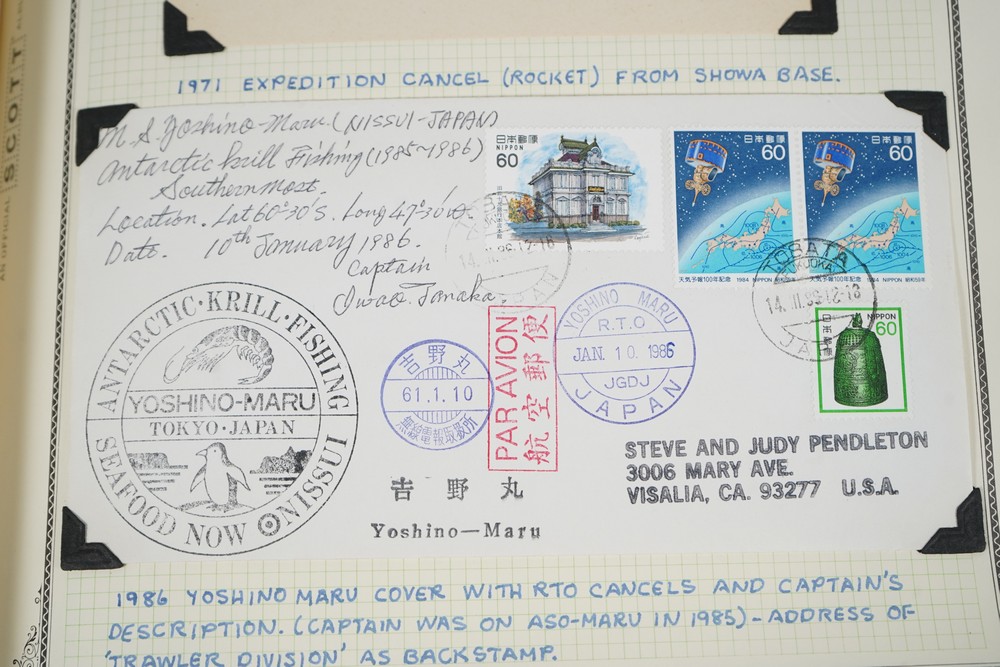 AN OFFICIAL SCOTT
1971 EXPEDITION CANCEL (ROCKET) FROM SHOWA BASE.
M.S. Yoshino-Maru (NISSUI-JAPAN)
Antarctic krill Fishing (1985~1986)
Southernmost.
Location. Lat 60°30's. Long 47°30'w.
Date. 10th January 1986.
Captain
Iwao. Tanaka.
日本郵便
NIPPON
60
日本郵便
60
天気予報100年記念 1984 NIPPON
日本郵便
60
天気予報100年記念 1984 NIPPON
TOBATA
FUKUOKA
14.II.86.12-18
JAPAN
日本郵便
NIPPON
60
ANTARCTIC·KRILL·FISHING
YOSHINO-MARU
TOKYO·JAPAN
SEAFOOD NOW NISSUI
吉野丸
61.1.10
無線電報取扱所
PAR AVION
航空郵便
YOSHINO MARU
R.T.O
JAN. 10. 1986
JGDJ
JAPAN
STEVE AND JUDY PENDLETON
3006 MARY AVE.
VISALIA, CA. 93277 U.S.A.
吉野丸
Yoshino—Maru
1986 YOSHINO MARU COVER WITH RTO CANCELS AND CAPTAIN'S
DESCRIPTION. (CAPTAIN WAS ON ASO-MARU IN 1985) - ADDRESS OF
'TRAWLER DIVISION' AS BACKSTAMP.